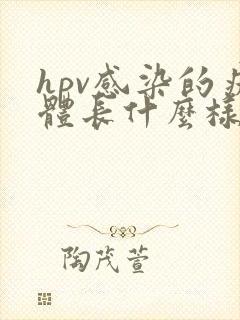 hpv感染的
體長什麼樣
陶茂萱